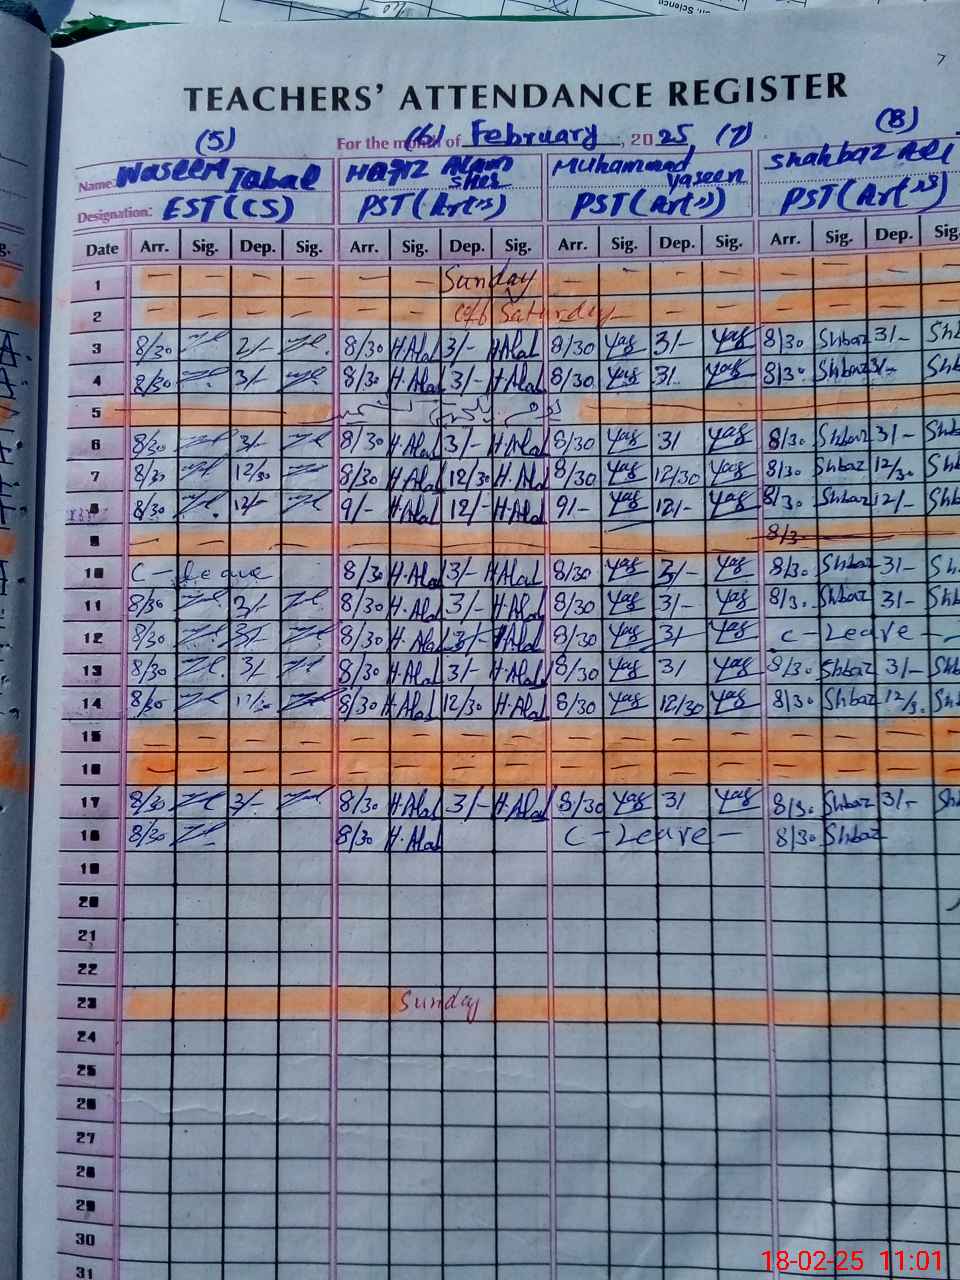 TEACHERS' ATTENDANCE REGISTER
(5) (6) (7) (8)
For the month of February, 2025
Name: Waseem Iqbal Hafiz Alam Sher Muhammad Yaseen Shahbaz Ali
Designation: EST (CS) PST (Art's) PST (Art's) PST (Art's)
Date Arr. Sig. Dep. Sig. Arr. Sig. Dep. Sig. Arr. Sig. Dep. Sig. Arr. Sig. Dep. Sig.
1 — — — — — Sunday — — — — — — —
2 — — — — — Saturday — — — — — —
3 8/30 8/30 H.Alad 3/- H.Alad 8/30 Yas 3/- Yas 8/30 Shbaz 3/- Shb
4 8/30 3/- 8/30 H.Alad 3/- H.Alad 8/30 Yas 3/- Yas 8/30 Shbaz 3/- Shb
5
6 8/30 3/- 8/30 H.Alad 3/- H.Alad 8/30 Yas 3/ Yas 8/30 Shbaz 3/- Shb
7 8/30 12/30 8/30 H.Alad 12/30 H.Alad 8/30 Yas 12/30 Yas 8/30 Shbaz 12/30 Shb
8 8/30 12/- 9/- H.Alad 12/- H.Alad 9/- Yas 12/- Yas 8/30 Shbaz 12/- Shb
9 — — — — — — — — — — — — 8/3
10 C-Leave 8/30 H.Alad 3/- H.Alad 8/30 Yas 3/- Yas 8/30 Shbaz 3/- Sh
11 8/30 3/- 8/30 H.Alad 3/- H.Alad 8/30 Yas 3/- Yas 8/30 Shbaz 3/- Shb
12 8/30 3/- 8/30 H.Alad 3/- H.Alad 8/30 Yas 3/ Yas C-Leave —
13 8/30 3/- 8/30 H.Alad 3/- H.Alad 8/30 Yas 3/ Yas 8/30 Shbaz 3/- Shb
14 8/30 8/30 H.Alad 12/30 H.Alad 8/30 Yas 12/30 Yas 8/30 Shbaz 12/3. Sh
15 — — — — — — — — — — — — — — —
16 — — — — — — — — — — — — — — —
17 8/30 3/- 8/30 H.Alad 3/- H.Alad 8/30 Yas 3/ Yas 8/30 Shbaz 3/- Sh
18 8/30 8/30 H.Alad C-Leave — 8/30 Shbaz
19
20
21
22
23 Sunday
24
25
26
27
28
29
30
31
18-02-25 11:01